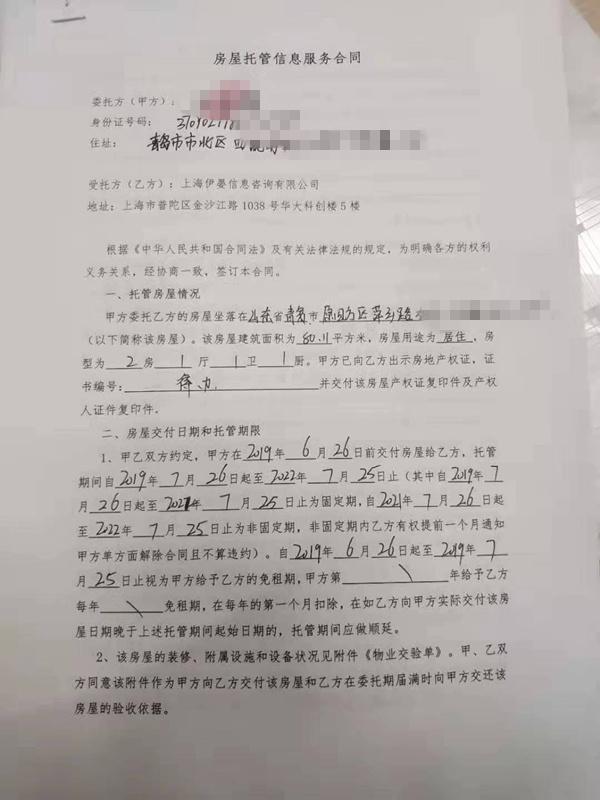 房屋托管信息服务合同
委托方（甲方）：
身份证号码：
住址：青岛市市北区
受托方（乙方）：上海伊晏信息咨询有限公司
地址：上海市普陀区金沙江路 1038 号华大科创楼 5 楼
根据《中华人民共和国合同法》及有关法律法规的规定，为明确各方的权利
义务关系，经协商一致，签订本合同。
一、托管房屋情况
甲方委托乙方的房屋坐落在山东省青岛市
（以下简称该房屋）。该房屋建筑面积为80.11平方米，房屋用途为居住，房
型为2房1厅1卫1厨。甲方已向乙方出示房地产权证，证
书编号：待办并交付该房屋产权证复印件及产权
人证件复印件。
二、房屋交付日期和托管期限
1、甲乙双方约定，甲方在2019年6月26日前交付房屋给乙方，托管
期间自2019年7月26日起至2022年7月25日止（其中自2019年7
月26日起至2021年7月25日止为固定期，自2021年7月26日起
至2022年7月25日止为非固定期，非固定期内乙方有权提前一个月通知
甲方单方面解除合同且不算违约）。自2019年6月26日起至2019年7
月25日止视为甲方给予乙方的免租期，甲方第\年给予乙方
每年\免租期，在每年的第一个月扣除，在如乙方向甲方实际交付该房
屋日期晚于上述托管期间起始日期的，托管期间应做顺延。
2、该房屋的装修、附属设施和设备状况见附件《物业交验单》。甲、乙双
方同意该附件作为甲方向乙方交付该房屋和乙方在委托期届满时向甲方交还该
房屋的验收依据。